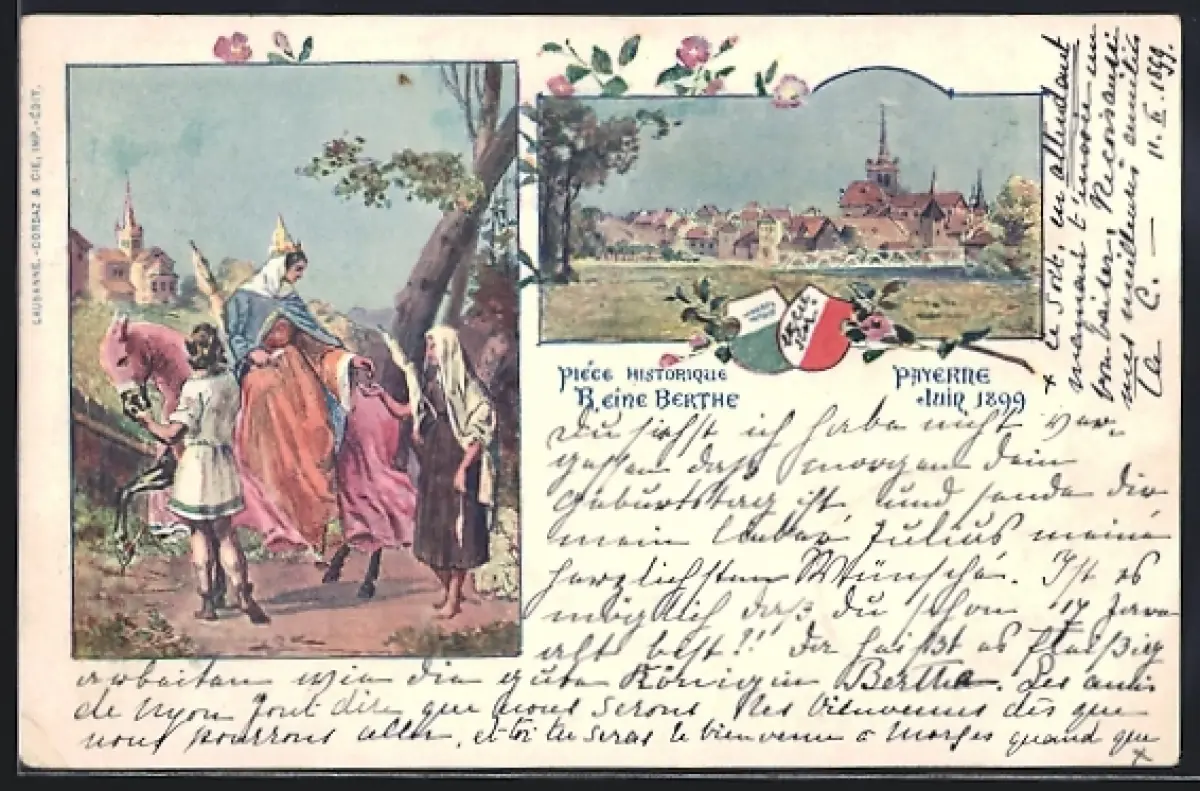 LAUSANNE.-CORBAZ & CIE, IMP.-ÉDIT.
PIÈCE HISTORIQUE
REINE BERTHE
PAYERNE
JUIN 1899
Du siehst ich habe nicht ver-
gessen daß morgen dein
Geburtstag ist und sende dir
mein lieber Julius meine
herzlichsten Wünsche. Ist es
möglich daß du schon 17 Jahre
alt bist?! Da heißt es fleißig
arbeiten wie die gute Königin Bertha. Les amis
de Nyon font dire que nous serons les bienvenus dès que
nous pourrons aller, et toi tu seras le bienvenu à Morges quand que
x ce soit, en attendant
maman t'envoie un
bon baiser, Reconnais
mes meilleures amitiés
La C. — 11. II. 1899.